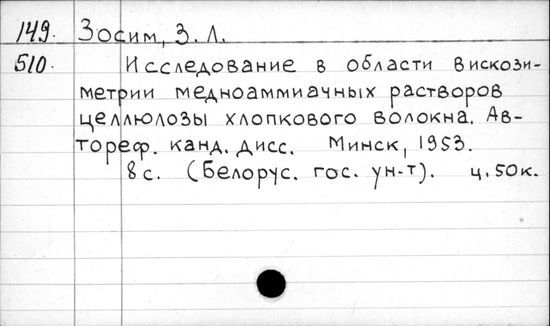 149. Зосим, З. Л.
510. Исследование в области вискози-
метрии медноаммиачных растворов
целлюлозы хлопкового волокна. Ав-
тореф. канд. дисс. Минск, 1953.
8 с. (Белорус. гос. ун-т). ц. 50 к.